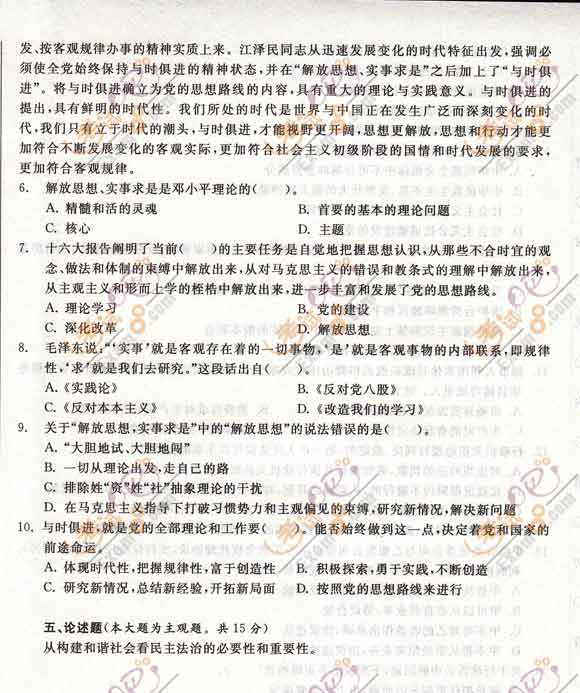 发、按客观规律办事的精神实质上来。江泽民同志从迅速发展变化的时代特征出发,强调必
须使全党始终保持与时俱进的精神状态,并在“解放思想、实事求是”之后加上了“与时俱
进”。将与时俱进确立为党的思想路线的内容,具有重大的理论与实践意义。与时俱进的
提出,具有鲜明的时代性。我们所处的时代是世界与中国正在发生广泛而深刻变化的时
代,我们只有立于时代的潮头,与时俱进,才能视野更开阔,思想更解放,思想和行动才能更
加符合不断发展变化的客观实际,更加符合社会主义初级阶段的国情和时代发展的要求,
更加符合客观规律。
6. 解放思想、实事求是是邓小平理论的( )。
A. 精髓和活的灵魂 B. 首要的基本的理论问题
C. 核心 D. 主题
7. 十六大报告阐明了当前( )的主要任务是自觉地把握思想认识,从那些不合时宜的观
念、做法和体制的束缚中解放出来,从对马克思主义的错误和教条式的理解中解放出来,
从主观主义和形而上学的桎梏中解放出来,进一步丰富和发展了党的思想路线。
A. 理论学习 B. 党的建设
C. 深化改革 D. 解放思想
8. 毛泽东说,“‘实事’就是客观存在着的一切事物,‘是’就是客观事物的内部联系,即规律
性,‘求’就是我们去研究。”这段话出自( )。
A.《实践论》 B.《反对党八股》
C.《反对本本主义》 D.《改造我们的学习》
9. 关于“解放思想,实事求是”中的“解放思想”的说法错误的是( )。
A. “大胆地试、大胆地闯”
B. 一切从理论出发,走自己的路
C. 排除姓“资”姓“社”抽象理论的干扰
D. 在马克思主义指导下打破习惯势力和主观偏见的束缚,研究新情况,解决新问题
10. 与时俱进,就是党的全部理论和工作要( )。能否始终做到这一点,决定着党和国家的
前途命运。
A. 体现时代性,把握规律性,富于创造性 B. 积极探索,勇于实践,不断创造
C. 研究新情况,总结新经验,开拓新局面 D. 按照党的思想路线来进行
五、论述题(本大题为主观题。共 15 分)
从构建和谐社会看民主法治的必要性和重要性。